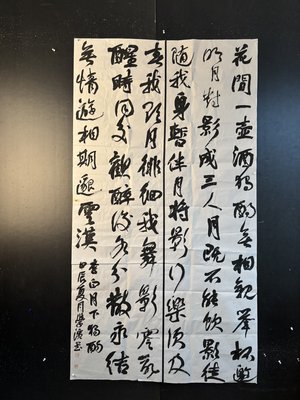 花間一壺酒獨酌無相親舉杯邀
明月對影成三人月既不解飲影徒
隨我身暫伴月將影行樂須及
春我歌月徘徊我舞影零亂
醒時同交歡醉後各分散永結
無情遊相期邈雲漢
李白月下獨酌
甲辰夏月